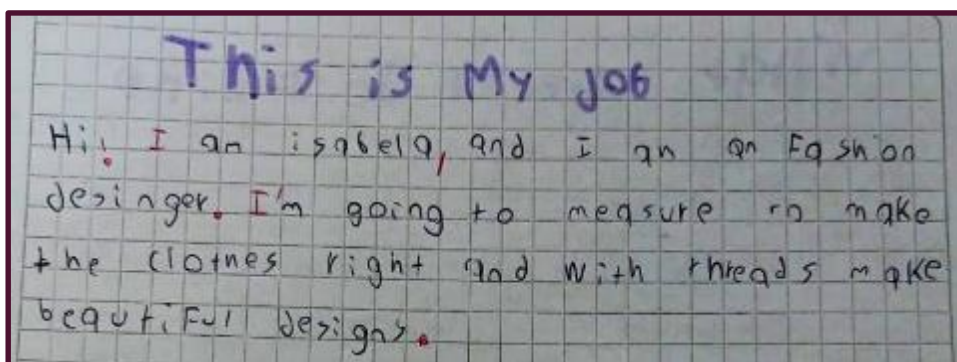 This is My Job
Hi! I am isabela, and I am an Fashion
desinger. I'm going to measure to make
the clothes right and with threads make
beautiful designs.